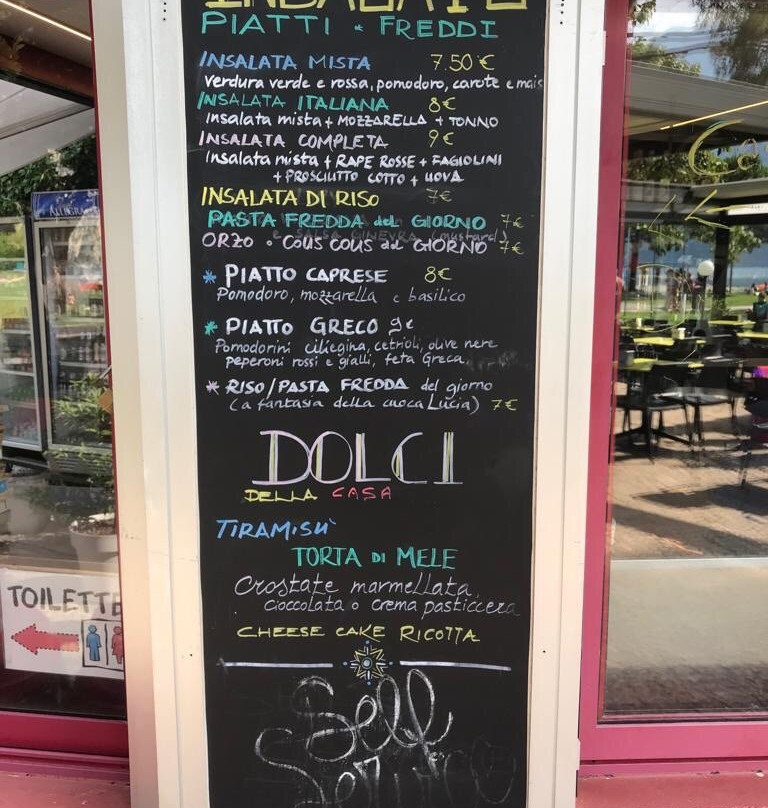 INSALATE
PIATTI • FREDDI
INSALATA MISTA 7.50 €
verdura verde e rossa, pomodoro, carote e mais
INSALATA ITALIANA 8€
Insalata mista + MOZZARELLA + TONNO
INSALATA COMPLETA 9€
Insalata mista + RAPE ROSSE + FAGIOLINI
+ PROSCIUTTO COTTO + UOVA
INSALATA DI RISO 7€
PASTA FREDDA del GIORNO 7€
ORZO • COUS COUS del GIORNO 7€
* PIATTO CAPRESE 8€
Pomodoro, mozzarella e basilico
* PIATTO GRECO 9€
Pomodorini ciliegina, cetrioli, olive nere
peperoni rossi e gialli, feta Greca
* RISO/PASTA FREDDA del giorno
(a fantasia della cuoca Lucia) 7€
DOLCI
DELLA CASA
TIRAMISÙ
TORTA DI MELE
Crostate marmellata,
cioccolata o crema pasticcera
CHEESE CAKE RICOTTA
Self
Service
TOILETTE